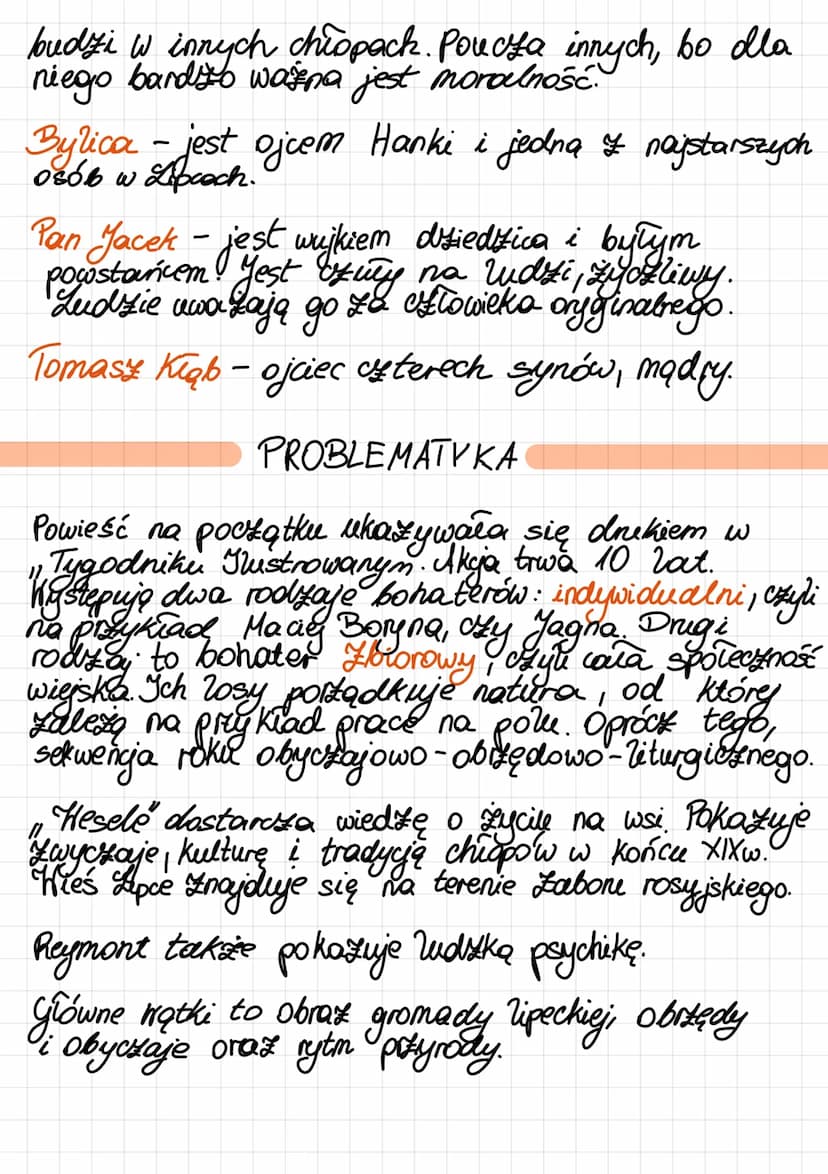 budzi w innych chłopach. Poucza innych, bo dla
niego bardzo ważna jest moralność.
Bylica – jest ojcem Hanki i jedną z najstarszych
osób w Lipcach.
Pan Jacek – jest wujkiem dziedzica i byłym
powstańcem. Jest czuły na ludzi, życzliwy.
Ludzie uważają go za człowieka oryginalnego.
Tomasz Kłąb – ojciec czterech synów, mądry.
PROBLEMATYKA
Powieść na początku ukazywała się drukiem w
„Tygodniku Ilustrowanym. Akcja trwa 10 lat.
Występują dwa rodzaje bohaterów: indywidualni, czyli
na przykład Maciej Boryna, czy Jagna. Drugi
rodzaj to bohater zbiorowy, czyli cała społeczność
wiejska. Ich losy porządkuje natura, od której
zależą na przykład prace na polu. Oprócz tego,
sekwencja roku obyczajowo-obrzędowo-liturgicznego.
„Wesele" dostarcza wiedzę o życiu na wsi. Pokazuje
zwyczaje, kulturę i tradycję chłopów w końcu XIXw.
Wieś Lipce znajduje się na terenie zaboru rosyjskiego.
Reymont także pokazuje ludzką psychikę.
Główne wątki to obraz gromady lipeckiej, obrzędy
i obyczaje oraz rytm przyrody.